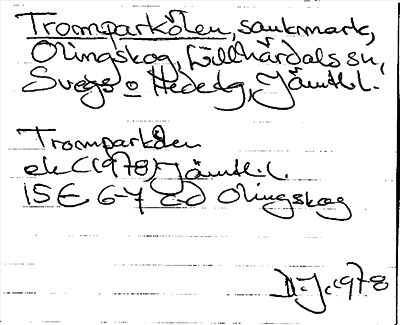 Tromparkölen, sankmark,
Olingskog, Lillhärdals sn,
Svegs o Hede dg, Jämtl.l.
Tromparkölen
ek (1978) Jämtl.l.
15E 6-7 c-d Olingskog
D.J. 1978